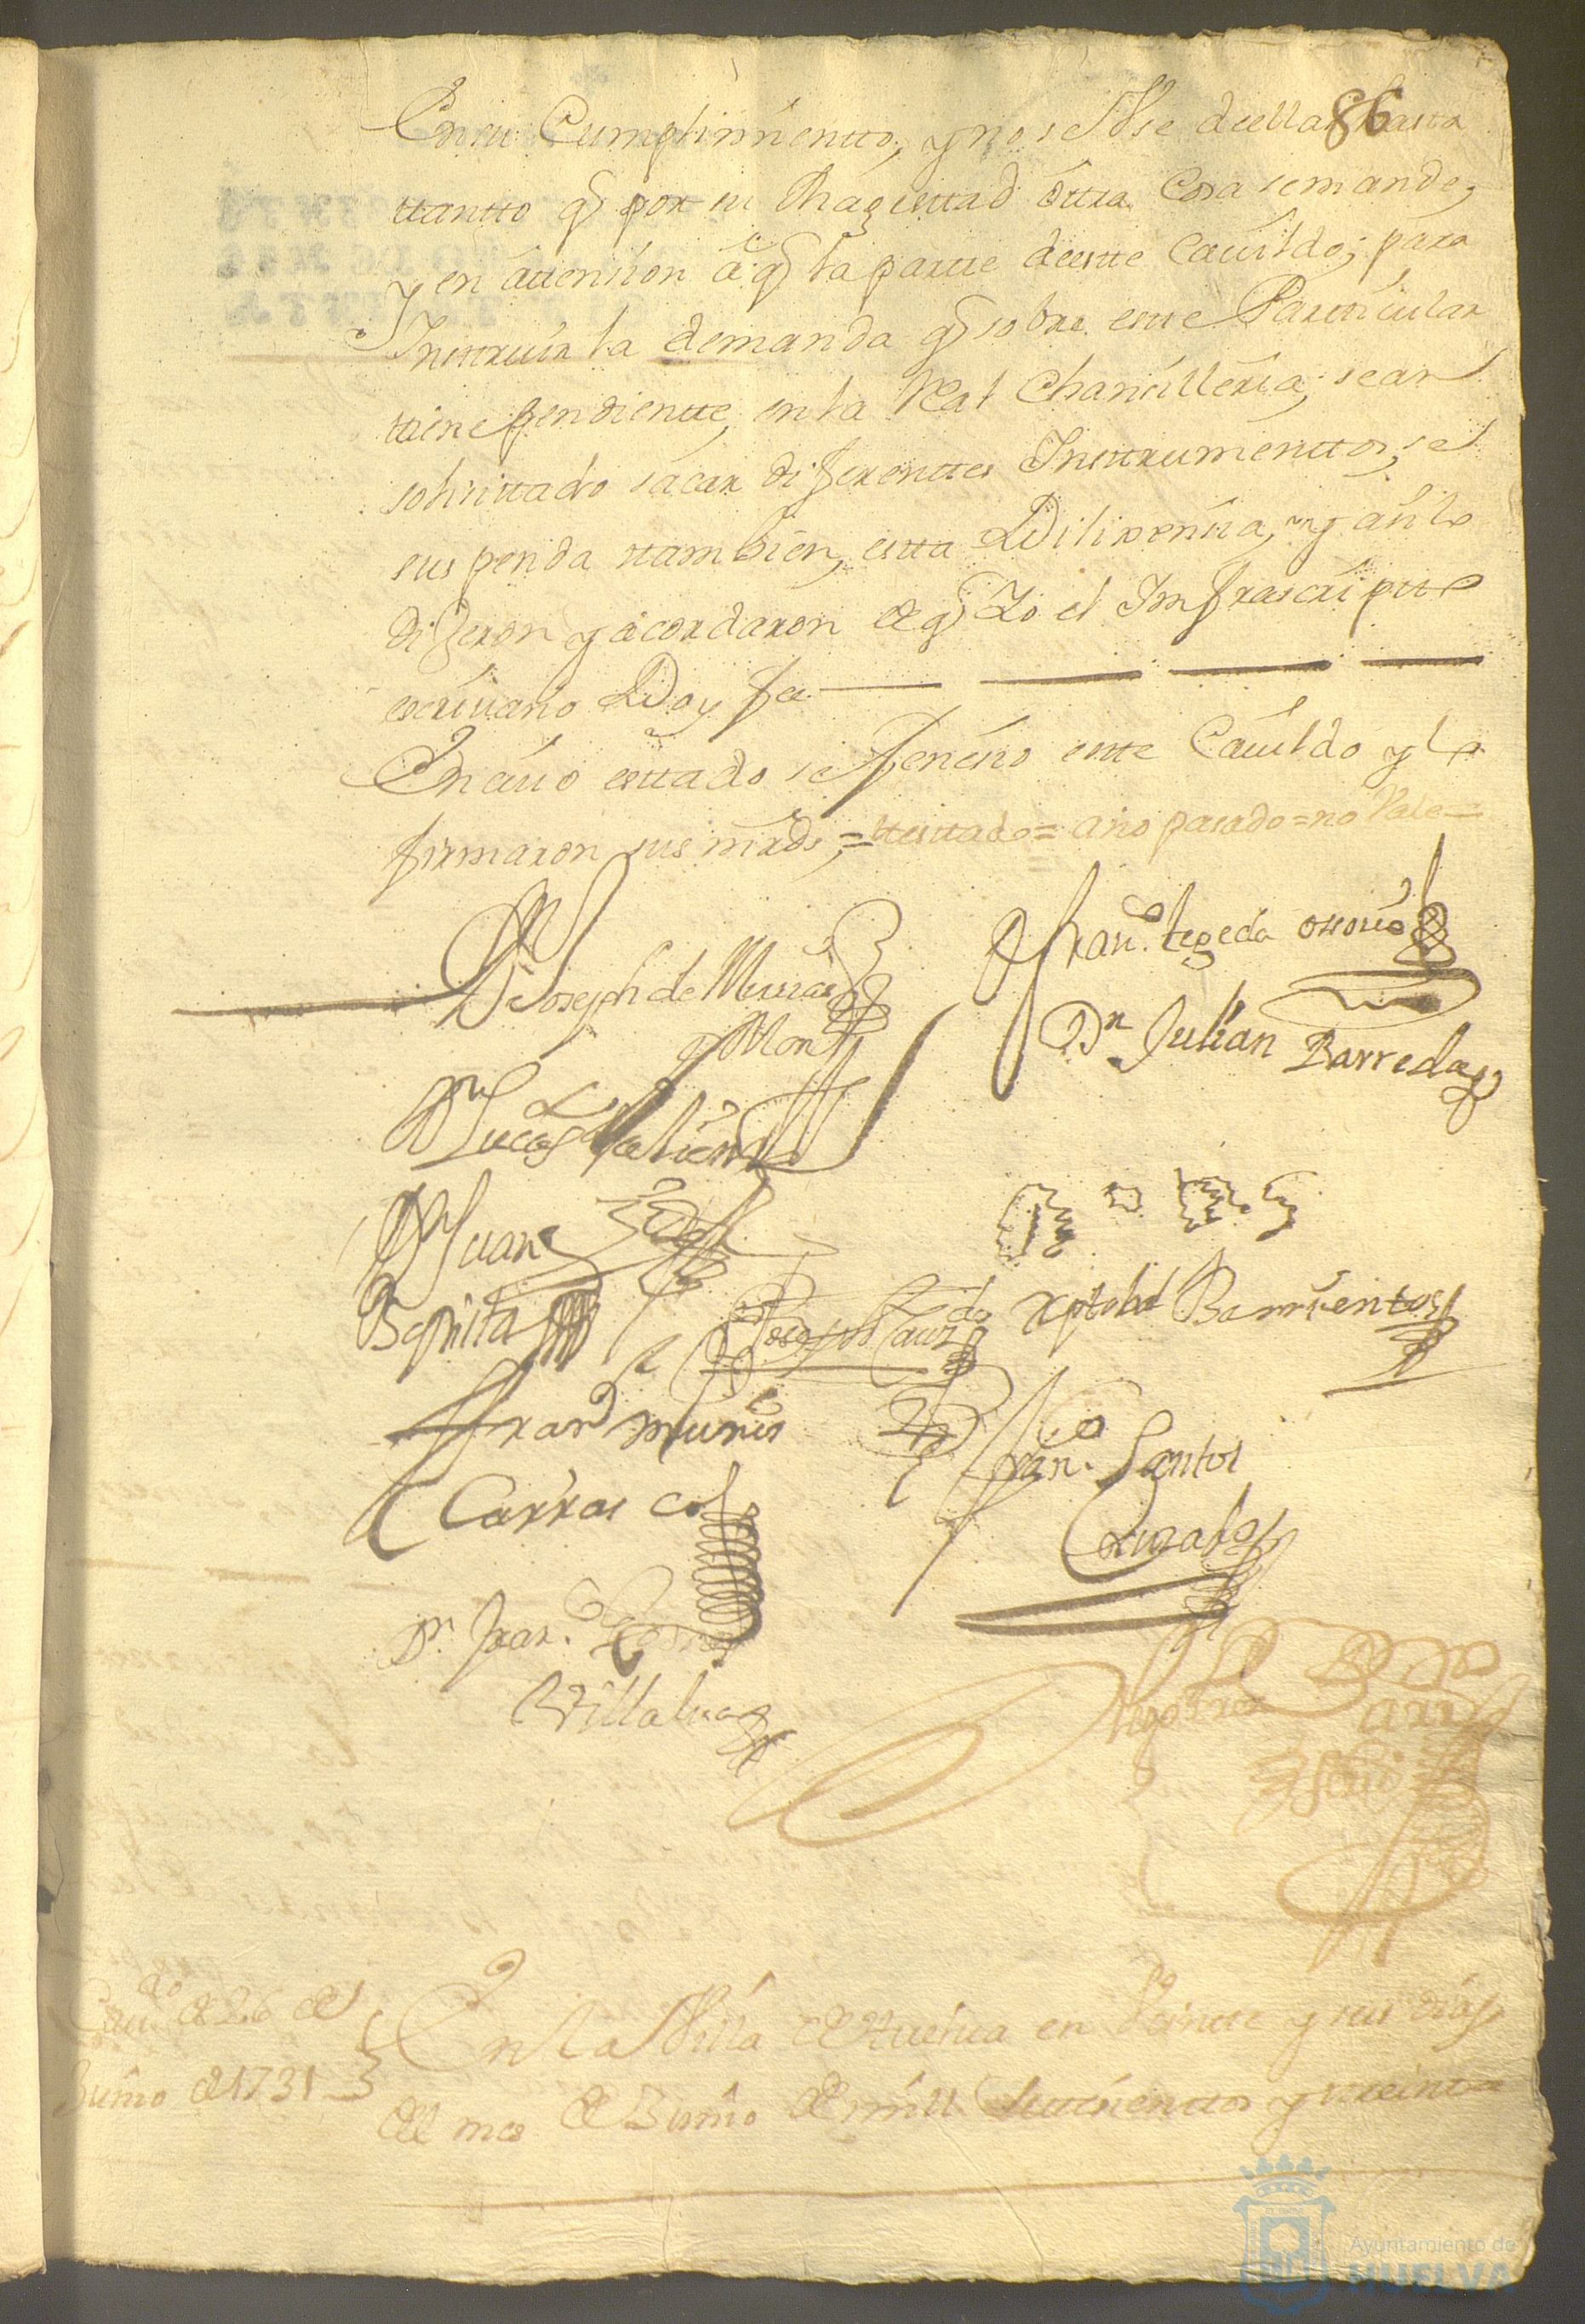 86
En su Cumplimiento, y no se Vse de ellas hasta
ttantto q̃ por su Magesttad ôttra Cosa se mande,
y en âttension â q̃ la partte de estte Cavildo, para
Insttruir la demanda q̃ sobre estte Partticular
tiene pendientte, en la Real Chansilleria, se an
solisittado sacar diferenttes Insttrumenttos, se
suspenda ttambien, estta Dilixensia, y ansi lo
dijeron y âcordaron de q̃ Yo el Imfrascriptto
escrivano Doy fee
En cuio esttado se fenesio estte Cavildo y lo
firmaron sus mrds, = ttesttado = año pasado = no Vale =
Dn Joseph de
Franco. tegeda ossorio
Dn Julian Barreda
Dn Lucas
Dn Juan
Baptista
Xptobal Barrientos
Fran munis
Carrasco
Franco. Santos
Dn Fran.
Villalua
Diego
Cavdo de 26 de
Junio de 1731
En la Villa de Huelva en Veintte y seis dias
del mes de Junio de mill settesienttos y treintta
Ayuntamiento de
HUELVA